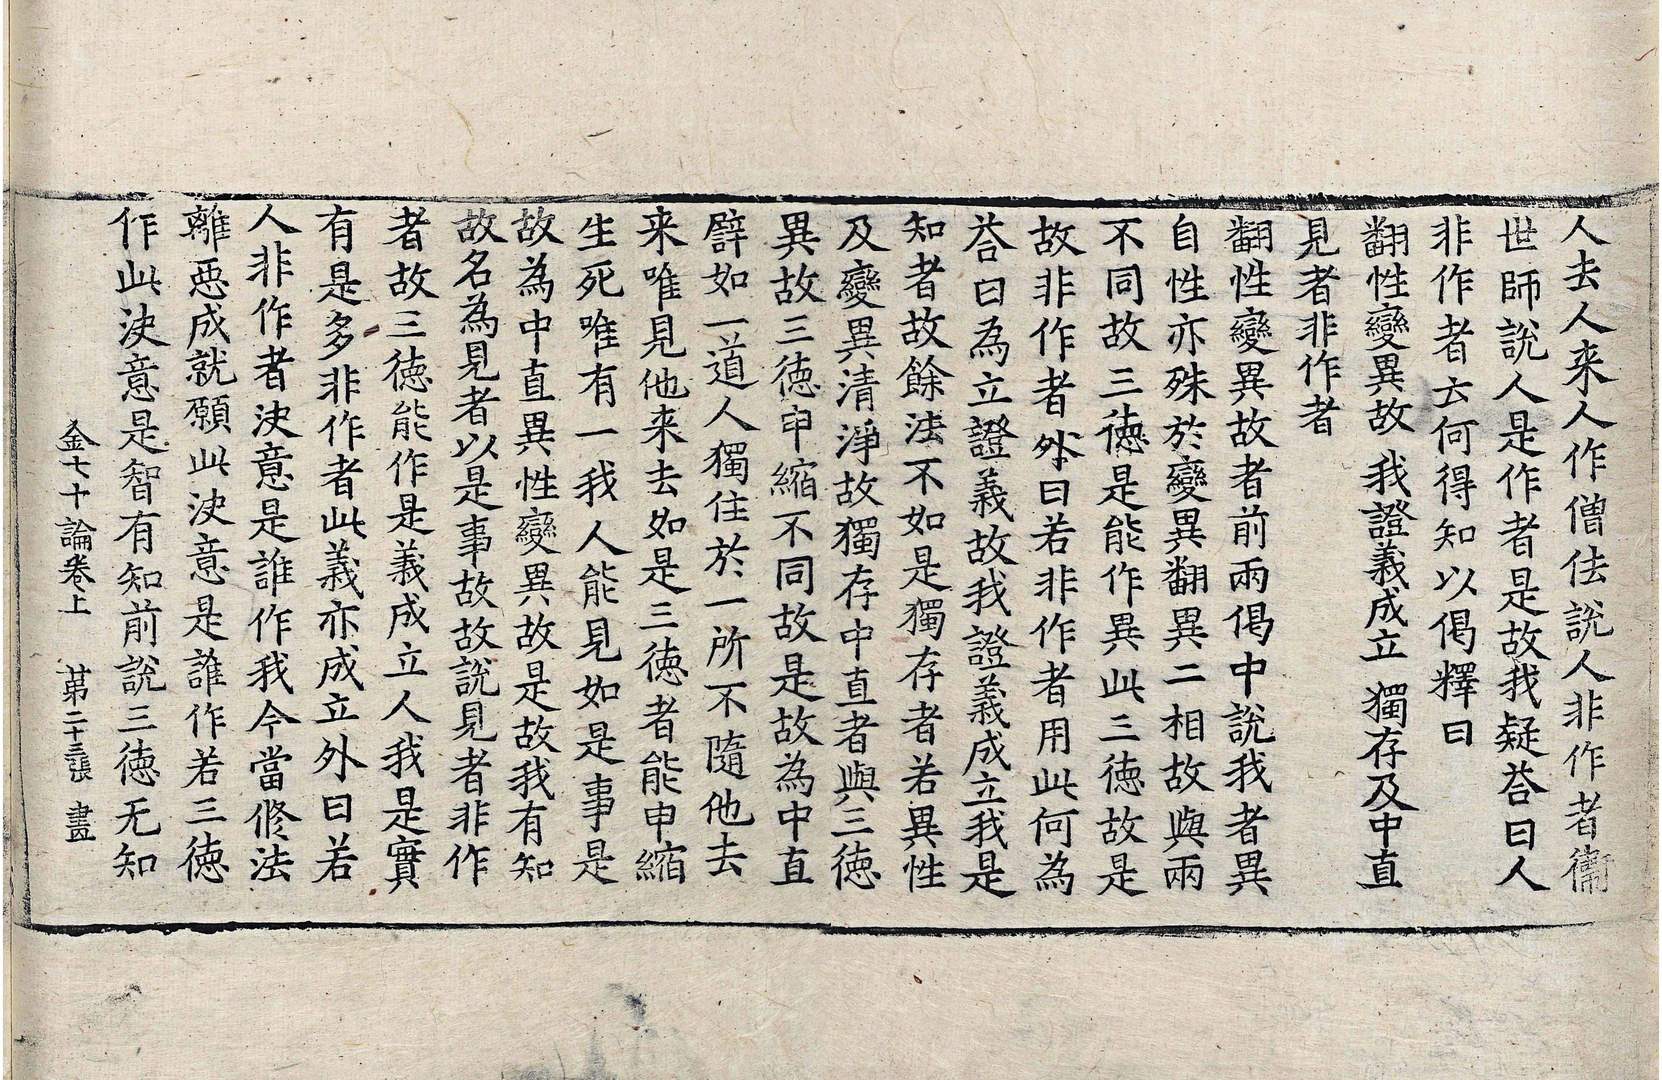 人去人来人作僧佉說人非作者衞
世師說人是作者是故我疑荅曰人
非作者云何得知以偈釋曰
翻性變異故　我證義成立　獨存及中直
見者非作者
翻性變異故者前兩偈中說我者異
自性亦殊於變異翻異二相故與兩
不同故三徳是能作異此三徳故是
故非作者外曰若非作者用此何為
荅曰為立證義故我證義成立我是
知者故餘法不如是獨存者若異性
及變異清淨故獨存中直者與三徳
異故三徳申縮不同故是故為中直
譬如一道人獨住於一所不隨他去
来唯見他来去如是三徳者能申縮
生死唯有一我人能見如是事是
故為中直異性變異故是故我有知
故名為見者以是事故故說見者非作
者故三徳能作是義成立人我是實
有是多非作者此義亦成立外曰若
人非作者決意是誰作我今當修法
離惡成就願此決意是誰作若三徳
作此決意是智有知前說三徳无知
金七十論卷上　第二十三張　畫